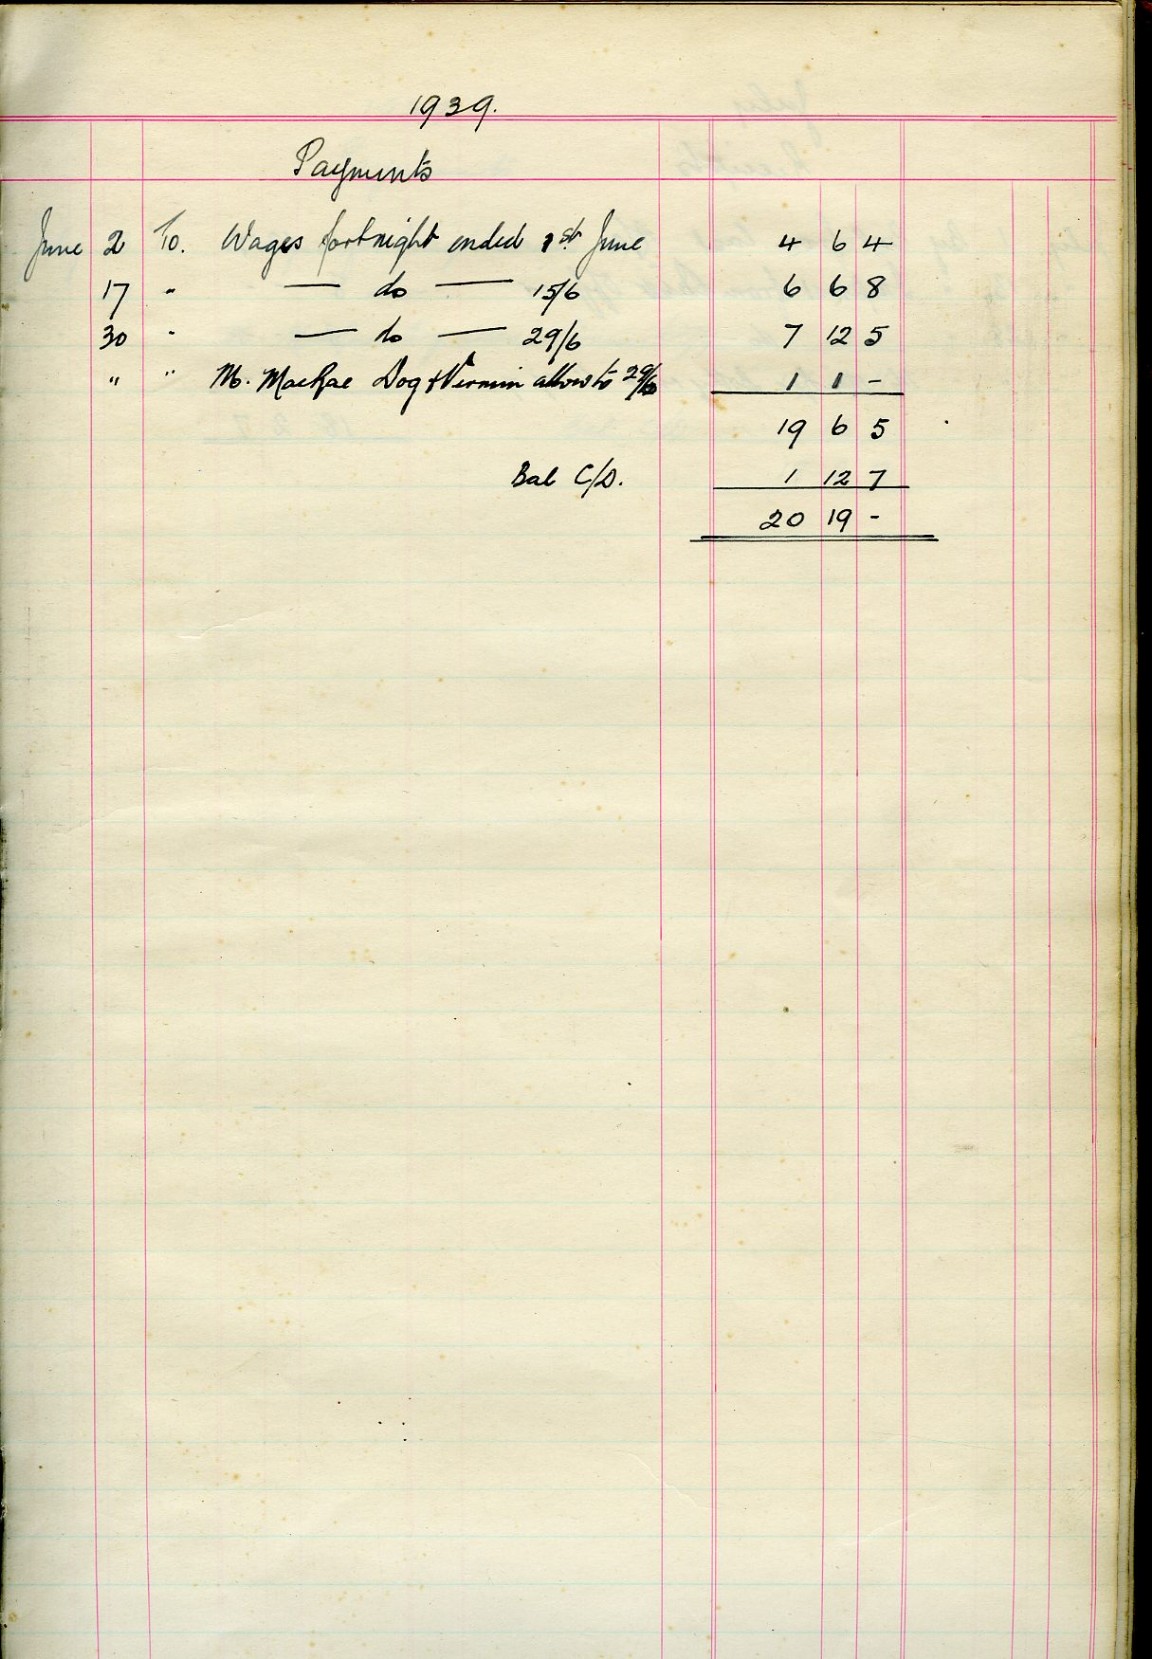 1939.
Payments
June 2 To. Wages fortnight ended 1st June 4 6 4
17 " — do — 15/6 6 6 8
30 " — do — 29/6 7 12 5
" " M. MacRae Dog & Vermin allow to 29/6 1 1 -
19 6 5
Bal C/D. 1 12 7
20 19 -